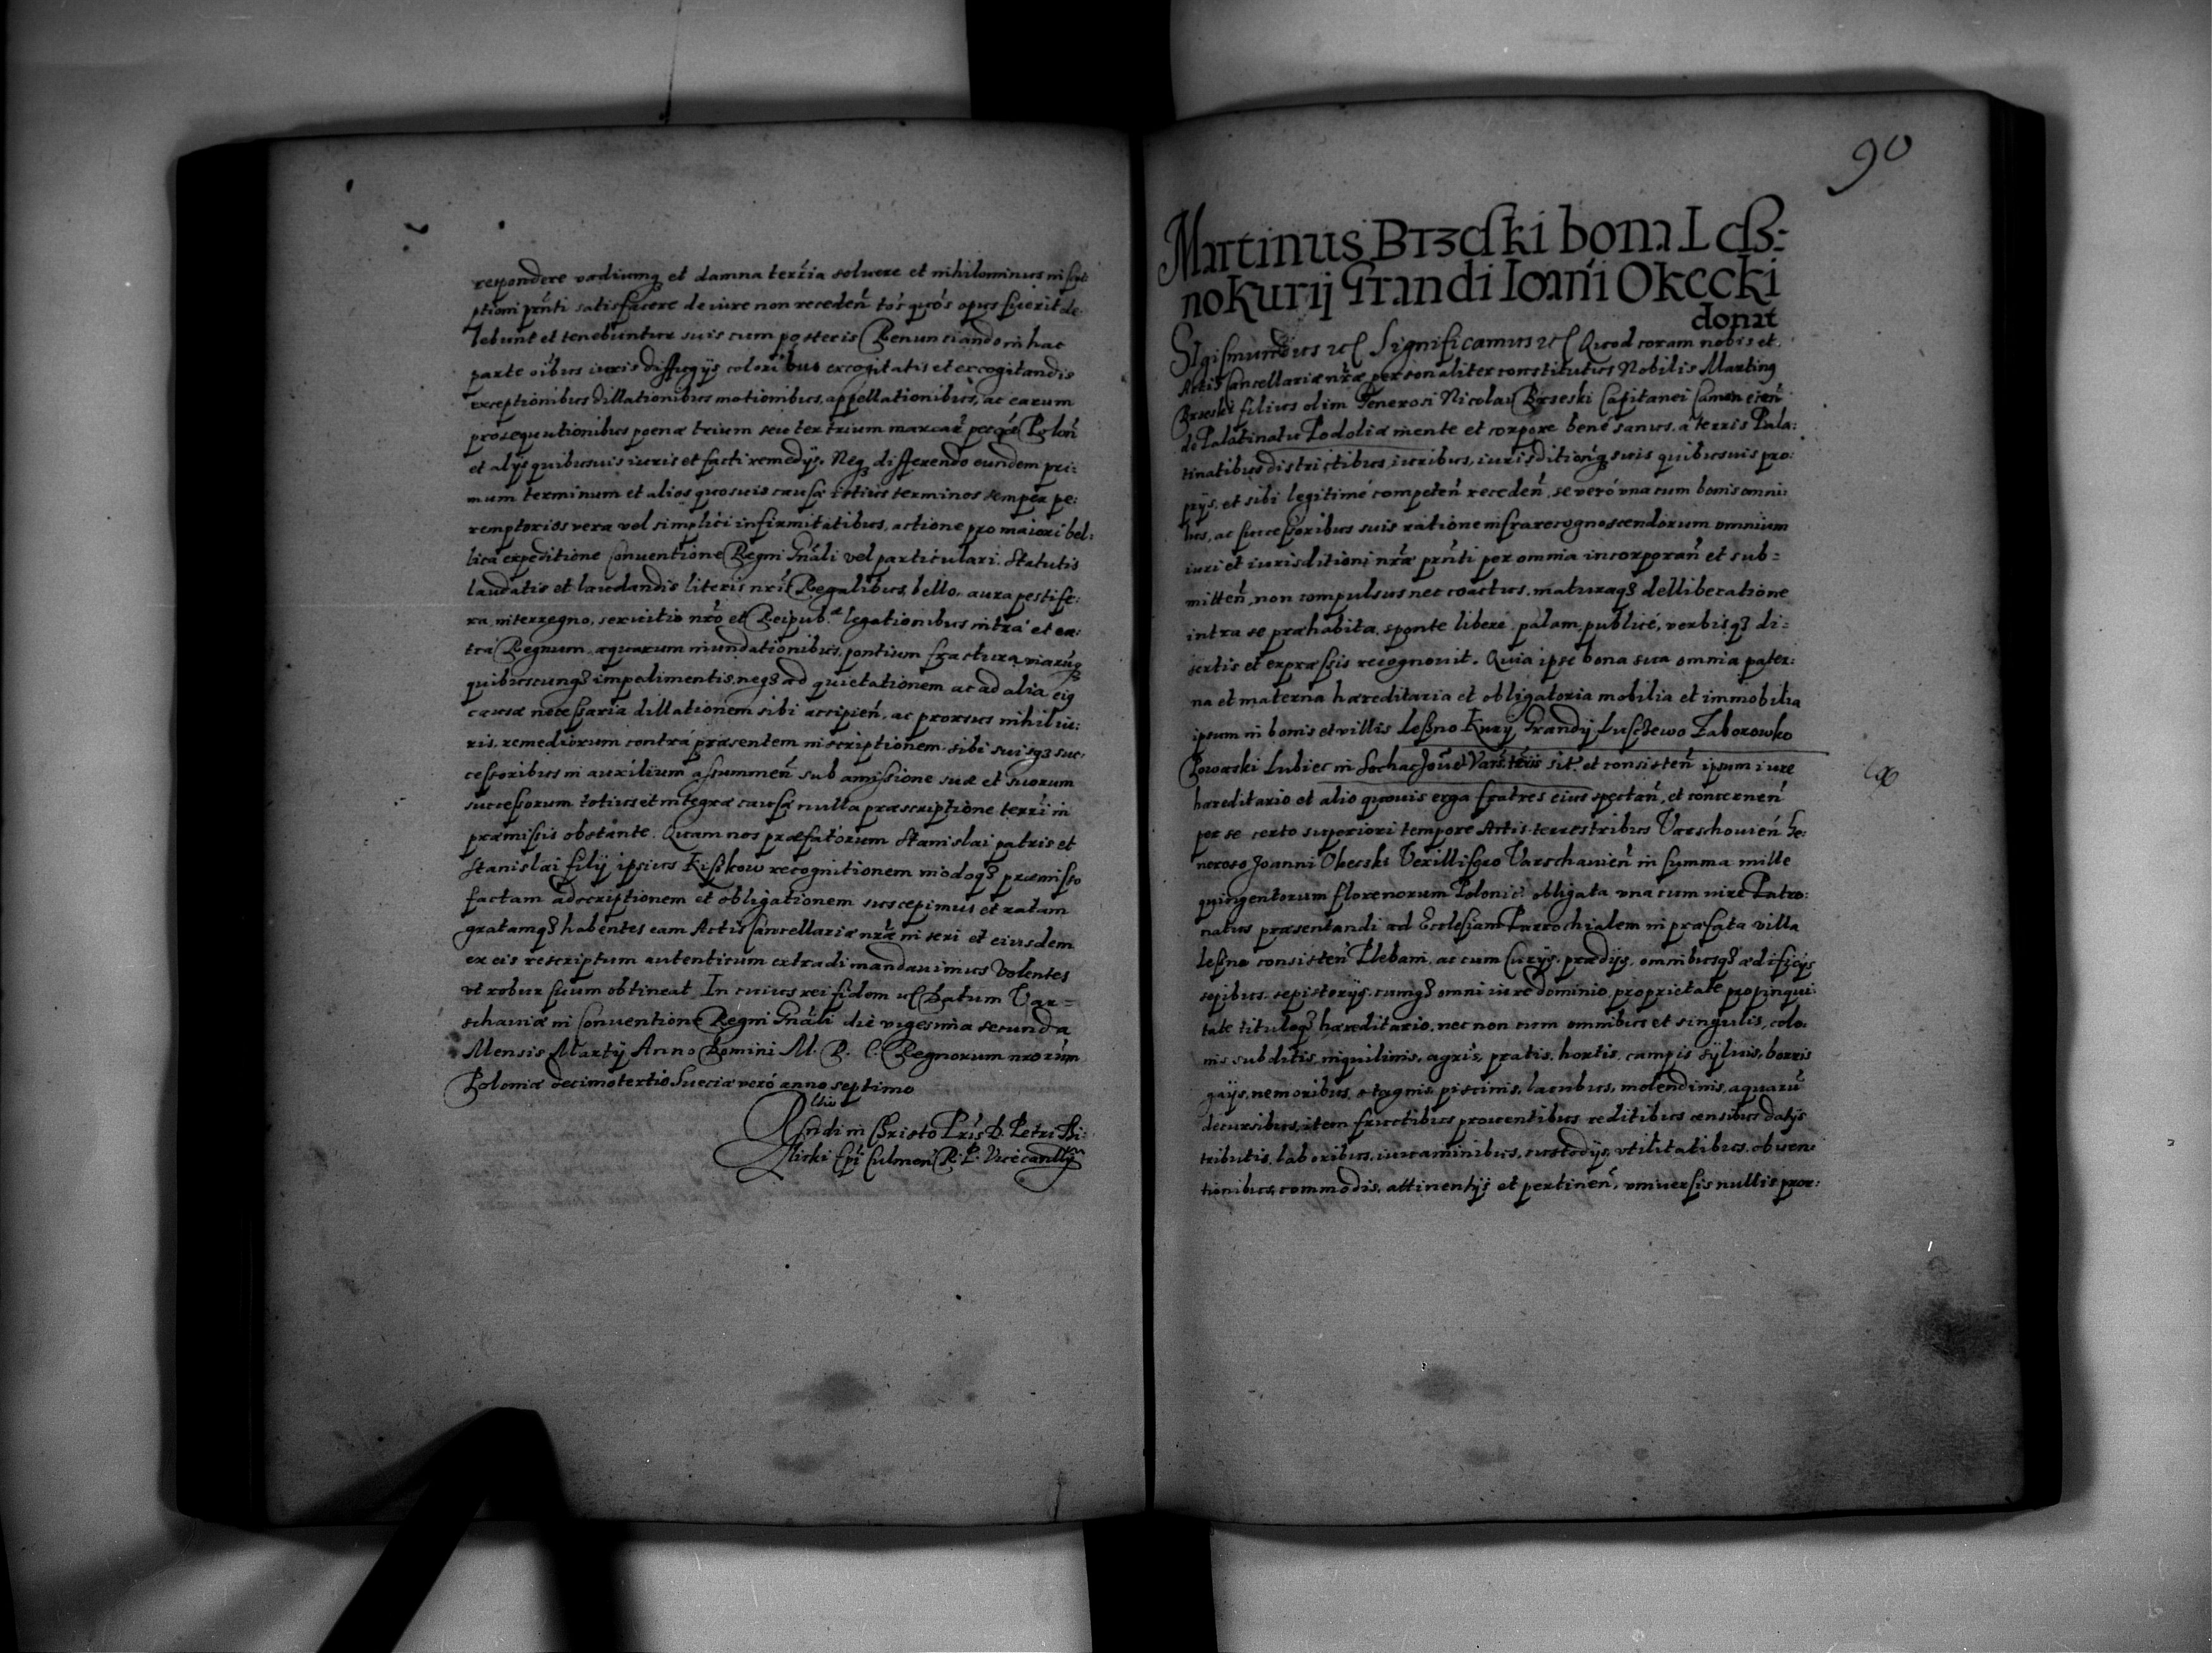 respondere vadiumq et damna terria soluere et nihilominus inscri
ptioni prnti satisfacere de iure non receden tos quos opus fuerit de
bebunt et tenebuntur suis cum posteris Renunciando in hac
parte oibus iuris diffugijs coloribus excogitatis et excogitandis
exceptionibus dillationibus motionibus, appellationibus, ac earum
prosequutionibus poenæ trium seu ter trium marcar Polon
et alijs quibusuis iuris et facti remedijs. Neq differendo eundem pri:
mum terminum et alios quosuis causæ istius terminos semper pe:
remptorios vera vel simplici infirmitatibus, actione pro maiori bel:
lica expeditione Conuentione Regni Gnali vel particulari. Statutis
laudatis et laudandis literis nris Regalibus, bello, aura pestife:
ra, interregno, seruitio nro et Reipub. legationibus intra et ex:
tra Regnum, aquarum inundationibus, pontium fractura, viarūq
quibuscunqȝ impedimentis, neqȝ ad quietationem ac ad alia eiq
causæ necessaria dillationem sibi accipien, ac prorsus nihil iu:
ris, remediorum contra præsentem inscriptionem sibi suisqȝ suc:
cessoribus in auxilium assummen sub amissione suæ et suorum
successorum totius et integræ causæ nulla præscriptione terrii in
præmissis obstante. Quam nos præfatorum Stanislai patris et
Stanislai filij ipsius Kißkow recognitionem modoqȝ præmisso
factam adscriptionem et obligationem suscepimus et ratam
gratamqȝ habentes eam Actis Cancellariæ nræ inseri et eiusdem
ex eis rescriptum autenticum extradi mandauimus Volentes
vt robur suum obtineat. In cuius rei fidem Datum Var=
schauiæ in Conuentione Regni Gnali die vigesima secunda
Mensis Martij Anno Domini M. D. C. Regnorum nrorum
Poloniæ decimotertio Sueciæ veró anno septimo
Rltio
Rndi in Christo Pris D. Petri Thi:
licki Epi Culmen R. P. Vicecancllrij
90
Martinus Brzeski bona Leß:
nokurij Grandi Ioanni Okecki
donat
Sigismundus Significamus Quod coram nobis et
Actis Cancellariæ nræ personaliter constitutus Nobilis Martinq
Brzeski filius olim Generosi Nicolai Brzeski Capitanei Camenecen
de Palatinatu Podoliæ mente et corpore bene sanus, á terris Pala:
tinatibus districtibus, iuribus, iurisditionqȝ suis quibusuis pro:
prijs, et sibi legitimé competen receden, se veró vna cum bonis omni:
bus, ac successoribus suis ratione infrarecognoscendorum omnium
iuri et iurisditioni nræ prnti per omnia incorporan et sub=
mitten, non compulsus nec coactus, maturaqȝ delliberatione
intra se præhabita, sponte liberé, palam, publicé, verbisqȝ di=
sertis et expræssis recognouit. Quia ipse bona sua omnia pater:
na et materna hæreditaria et obligatoria mobilia et immobilia
ipsum in bonis et villis Leßno Kurij Grandij Luszczewo Zaborowko
Powarski Lubiec in Sochac sit. et consisten ipsum iure
hæreditario et alio quouis erga fratres eius spectan, et concernen
per se certo superiori tempore Actis terrestribus Varschouien Ge:
neroso Joanni Okecski Vexillifero Varschauien in summa mille
quingentorum florenorum Polonic obligata vna cum iure Patro:
natus præsentandi ad Ecclesiam Parrochialem in præfata villa
Leßno consisten Plebani, ac cum Curijs, prædijs, omnibusqȝ ædificijs
sepibus, sepistorijs, cumqȝ omni iure dominio, proprietate propinqui:
tate tituloqȝ hæreditario, nec non cum omnibus et singulis, colo:
nis subditis, inquilinis, agris, pratis, hortis, campis sylvis, borris
gaijs, nemoribus, stagnis, piscinis, lacubus, molendinis, aquarū
decursibus, item fructibus prouentibus reditibus censibus datijs
tributis, laboribus, iuuaminibus, custodijs, vtilitatibus, obuen:
tionibus, commodis, attinentijs et pertinen, vniuersis nullis pror: